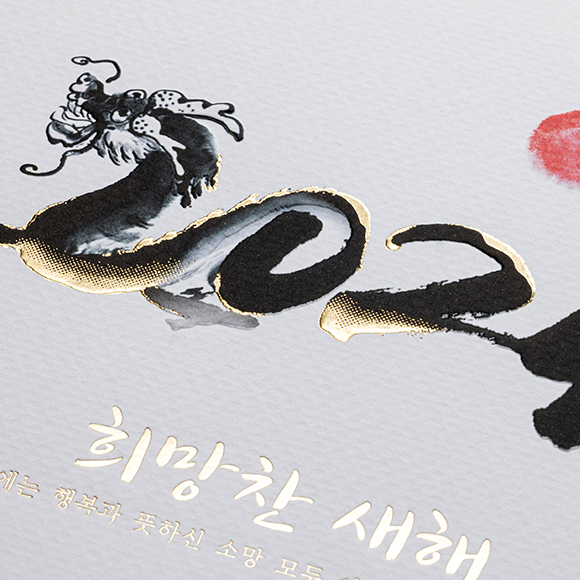 202
희망찬 새해
에는 행복과 뜻하신 소망 모두